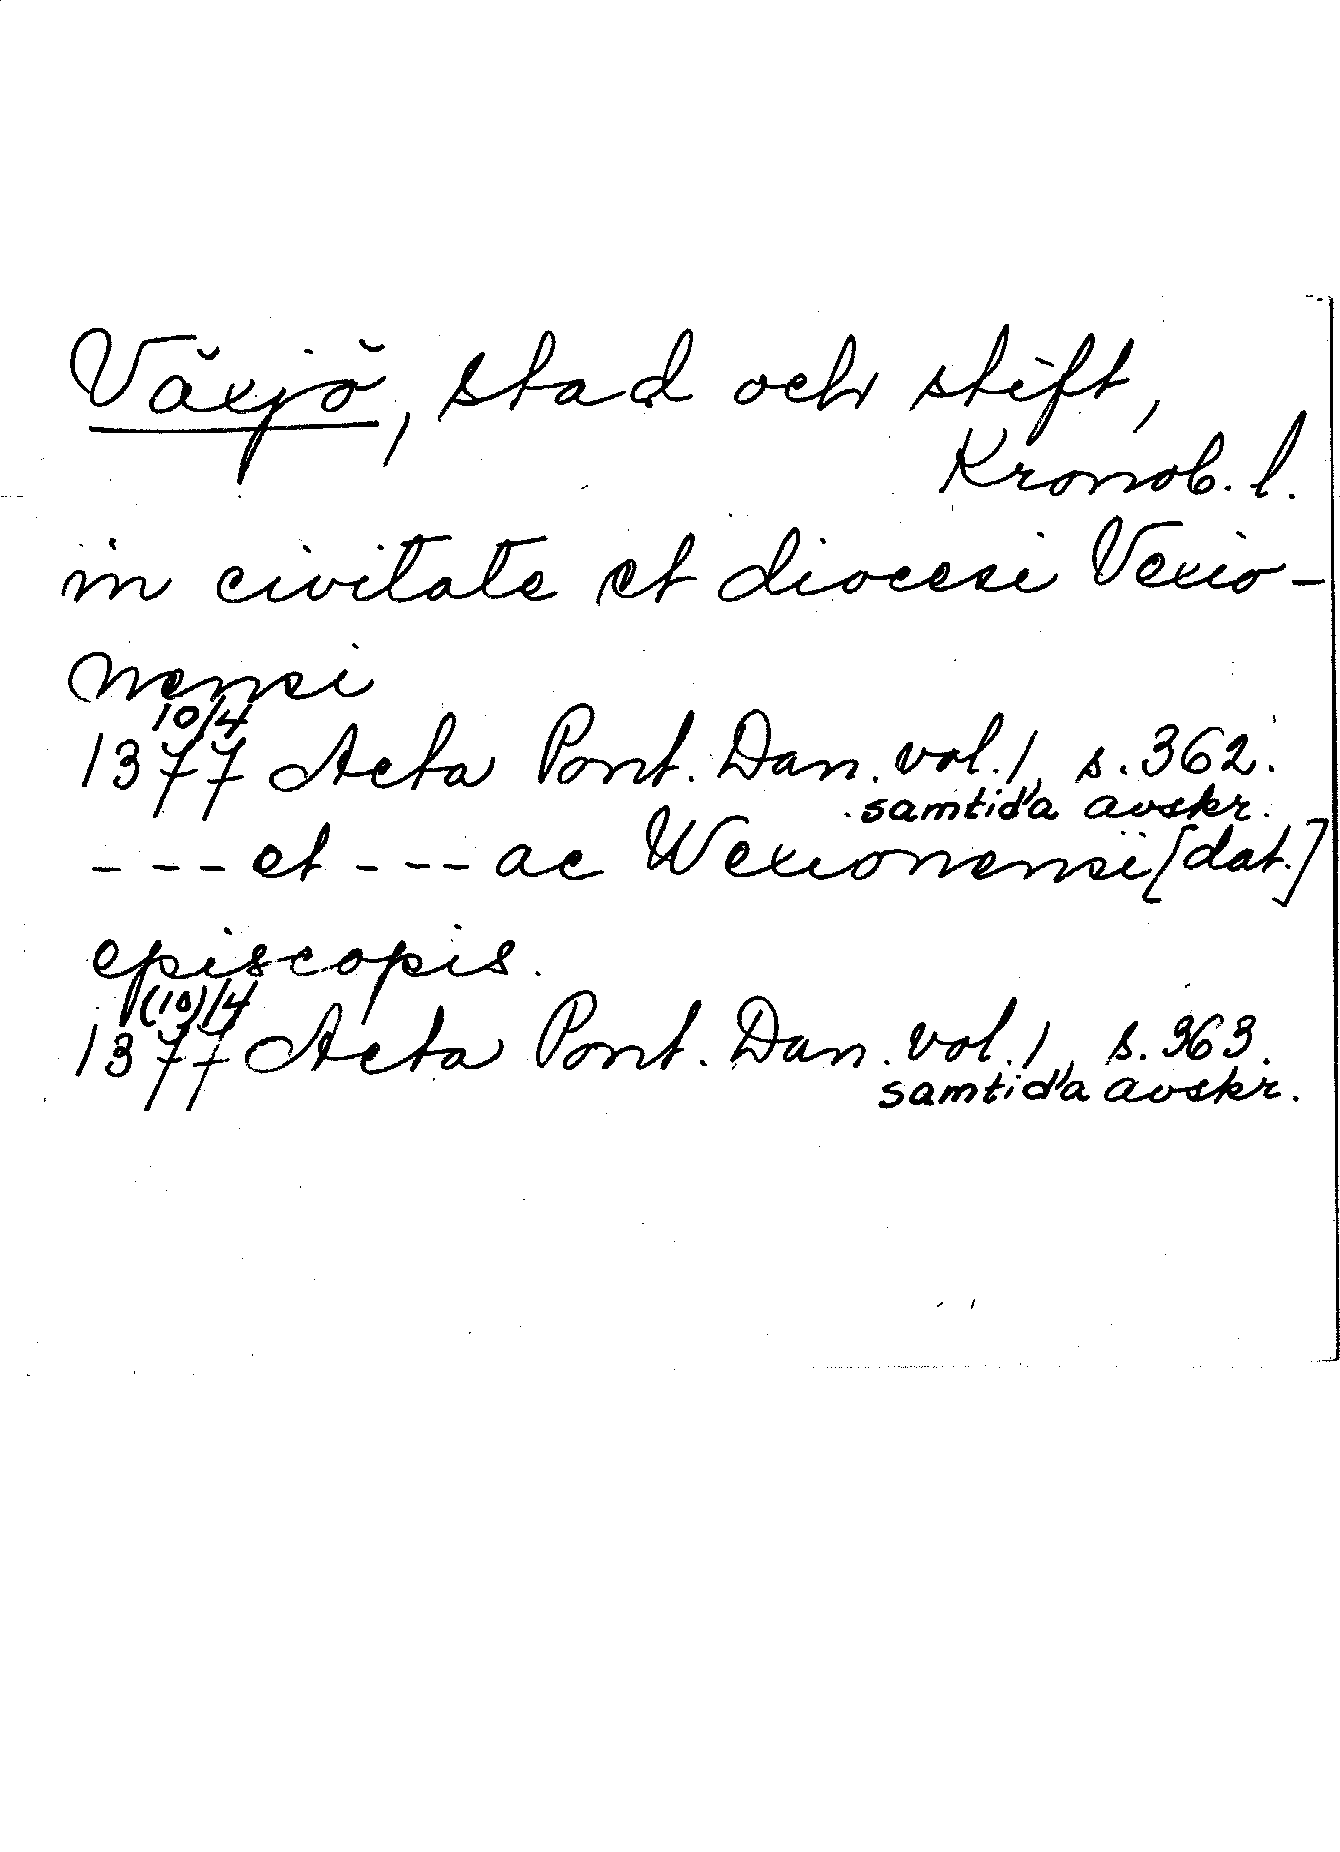 Växjö, stad och stift,
Kronob. l.
in civitate et diocesi Vexio-
nensi
10/4
1377 Acta Pont. Dan. vol. 1, s. 362.
samtida avskr.
--- et --- ac Wexionensi [dat.]
episcopis.
(10)/4
1377 Acta Pont. Dan. vol. 1, s. 363.
samtida avskr.